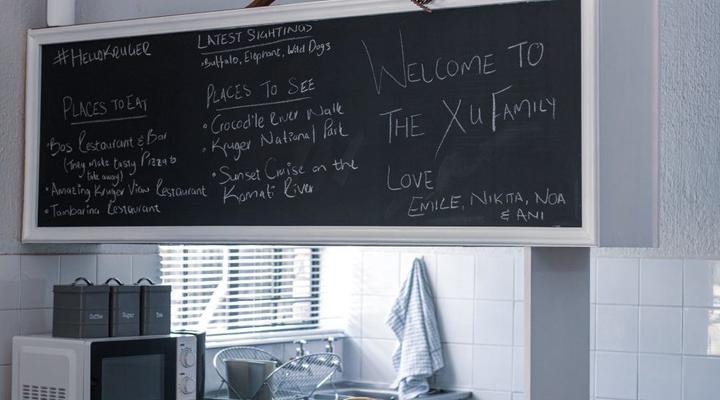 #HelloKruger
Places to Eat
• Bos Restaurant & Bar
(They make tasty Pizza to
take away)
• Amazing Kruger View Restaurant
• Tambarina Restaurant
Latest Sightings
• Buffalo, Elephant, Wild Dogs
Places to See
• Crocodile River Walk
• Kruger National Park
• Sunset Cruise on the
Komati River
Welcome to
the Xu Family
Love
Emile, Nikita, Noa
& Ani
Coffee
Sugar
Tea